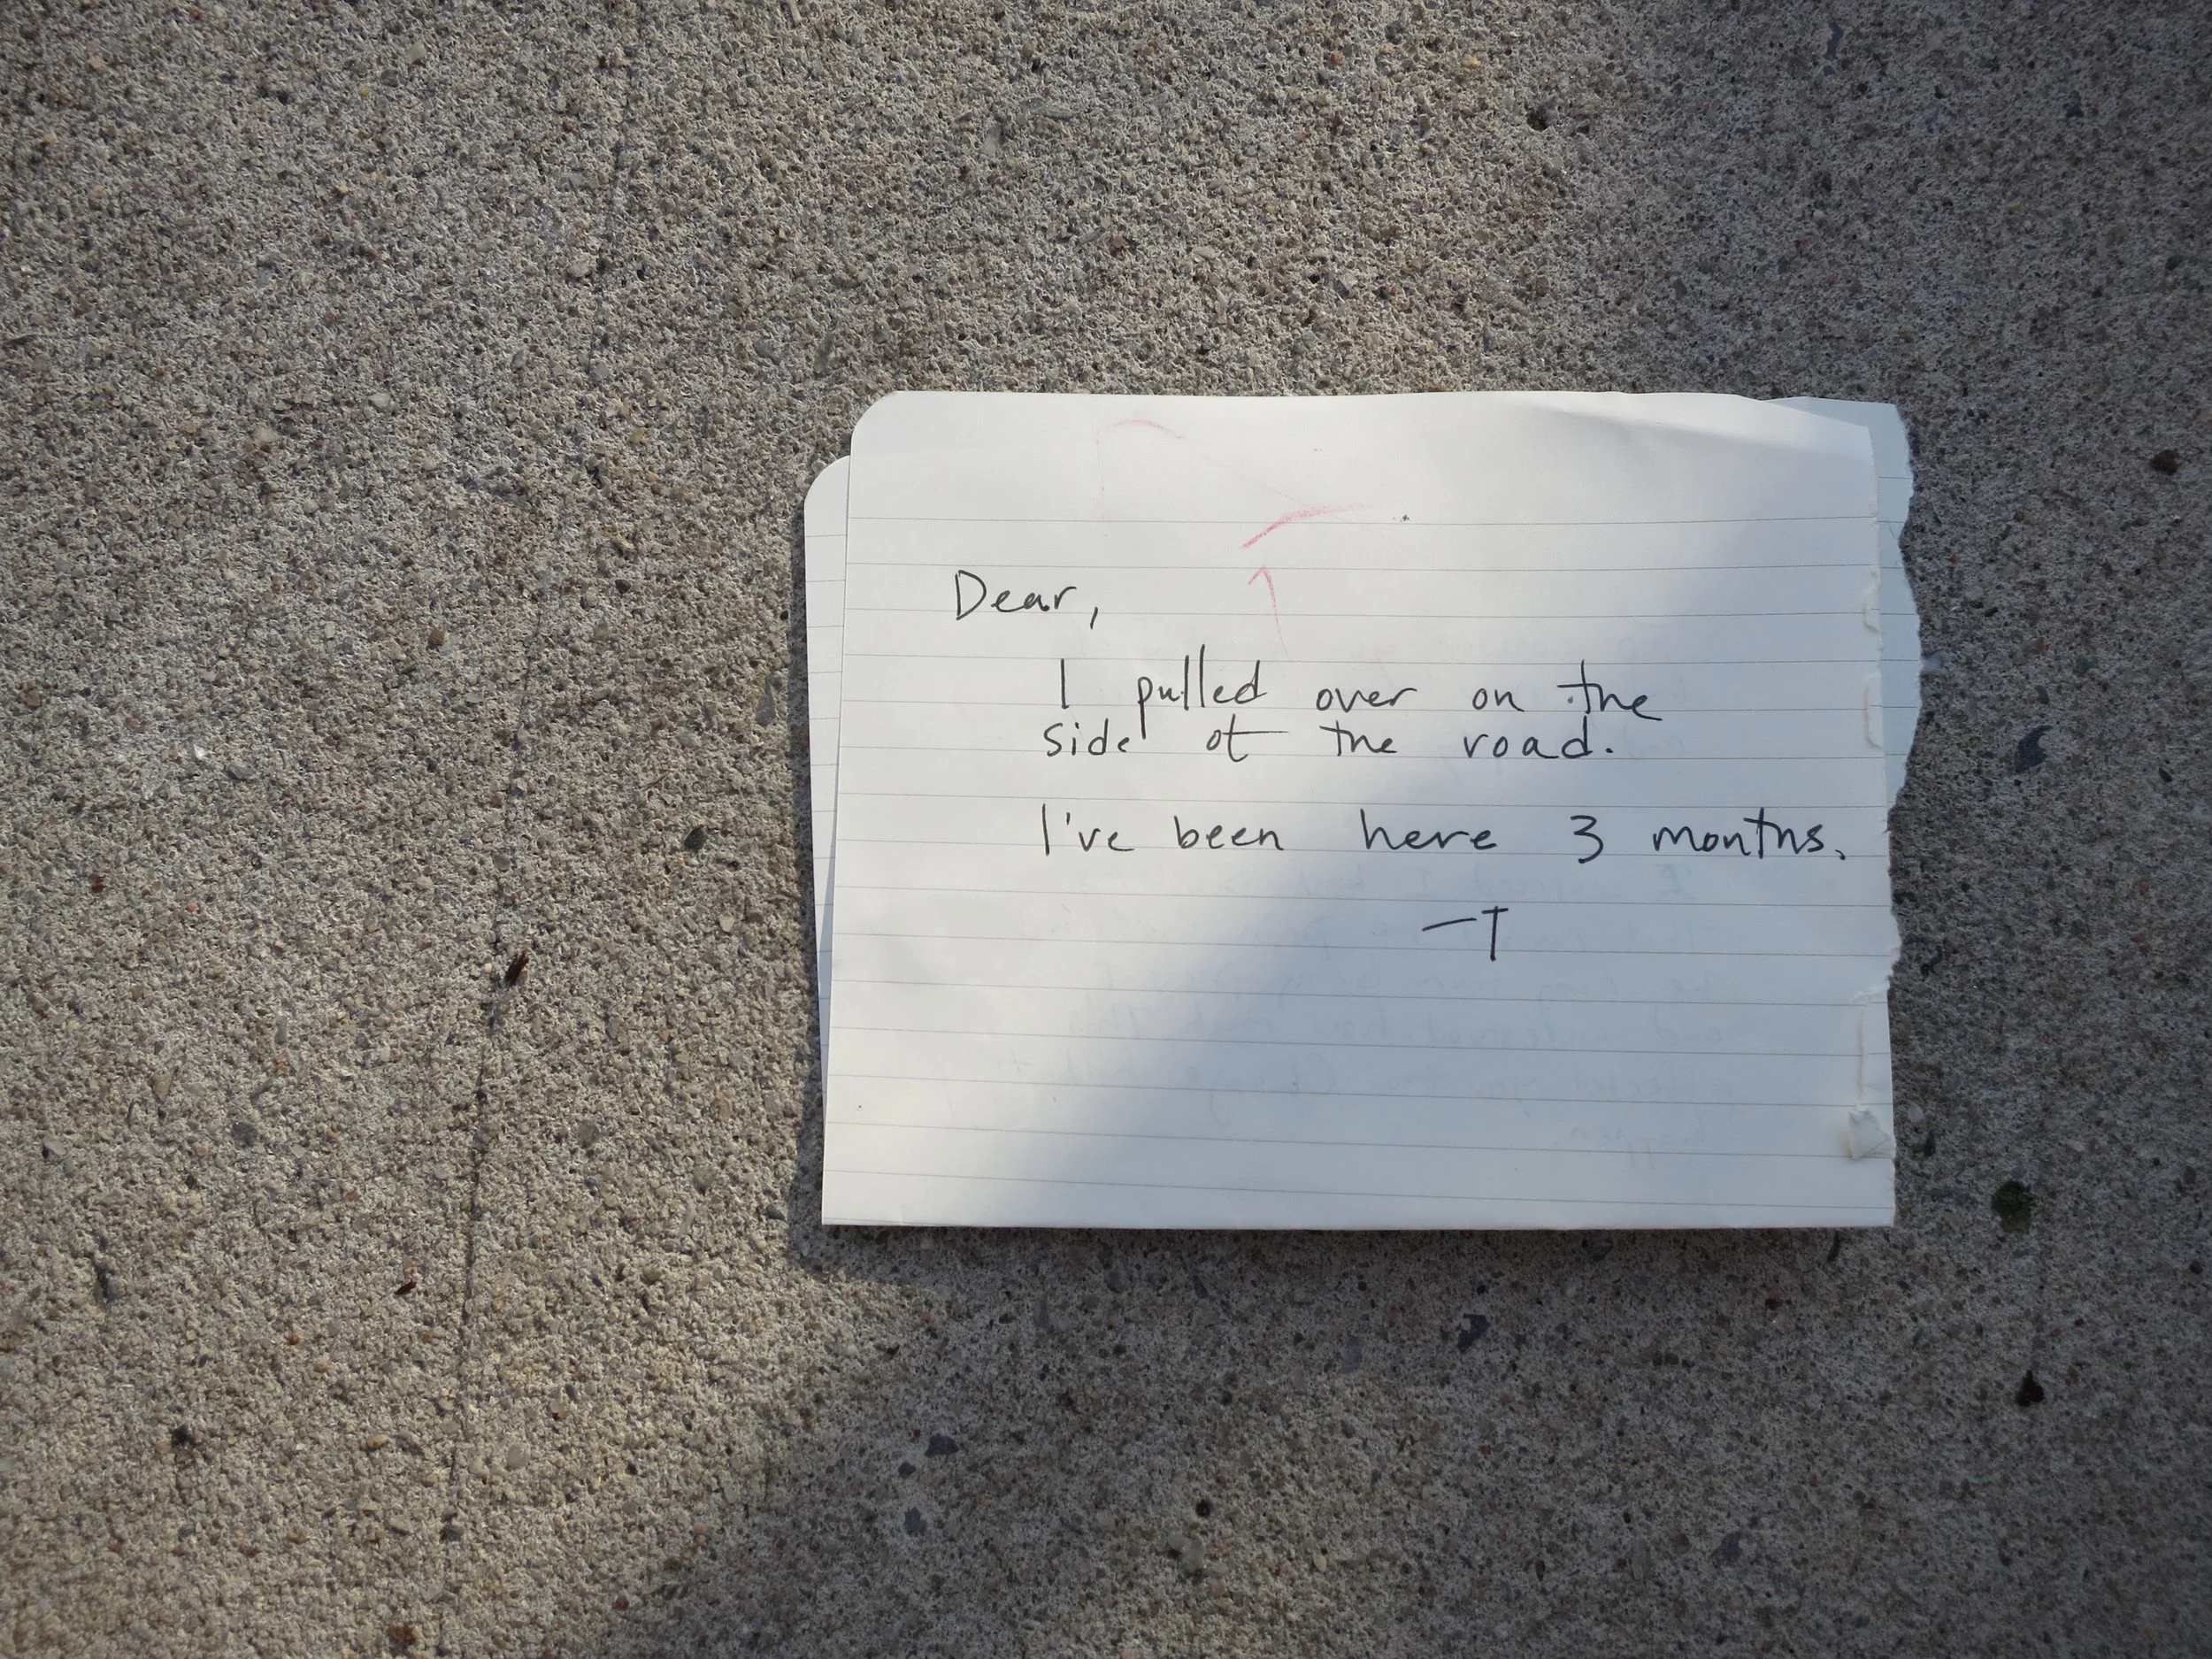 Dear,
I pulled over on the
side of the road.
I've been here 3 months.
—T